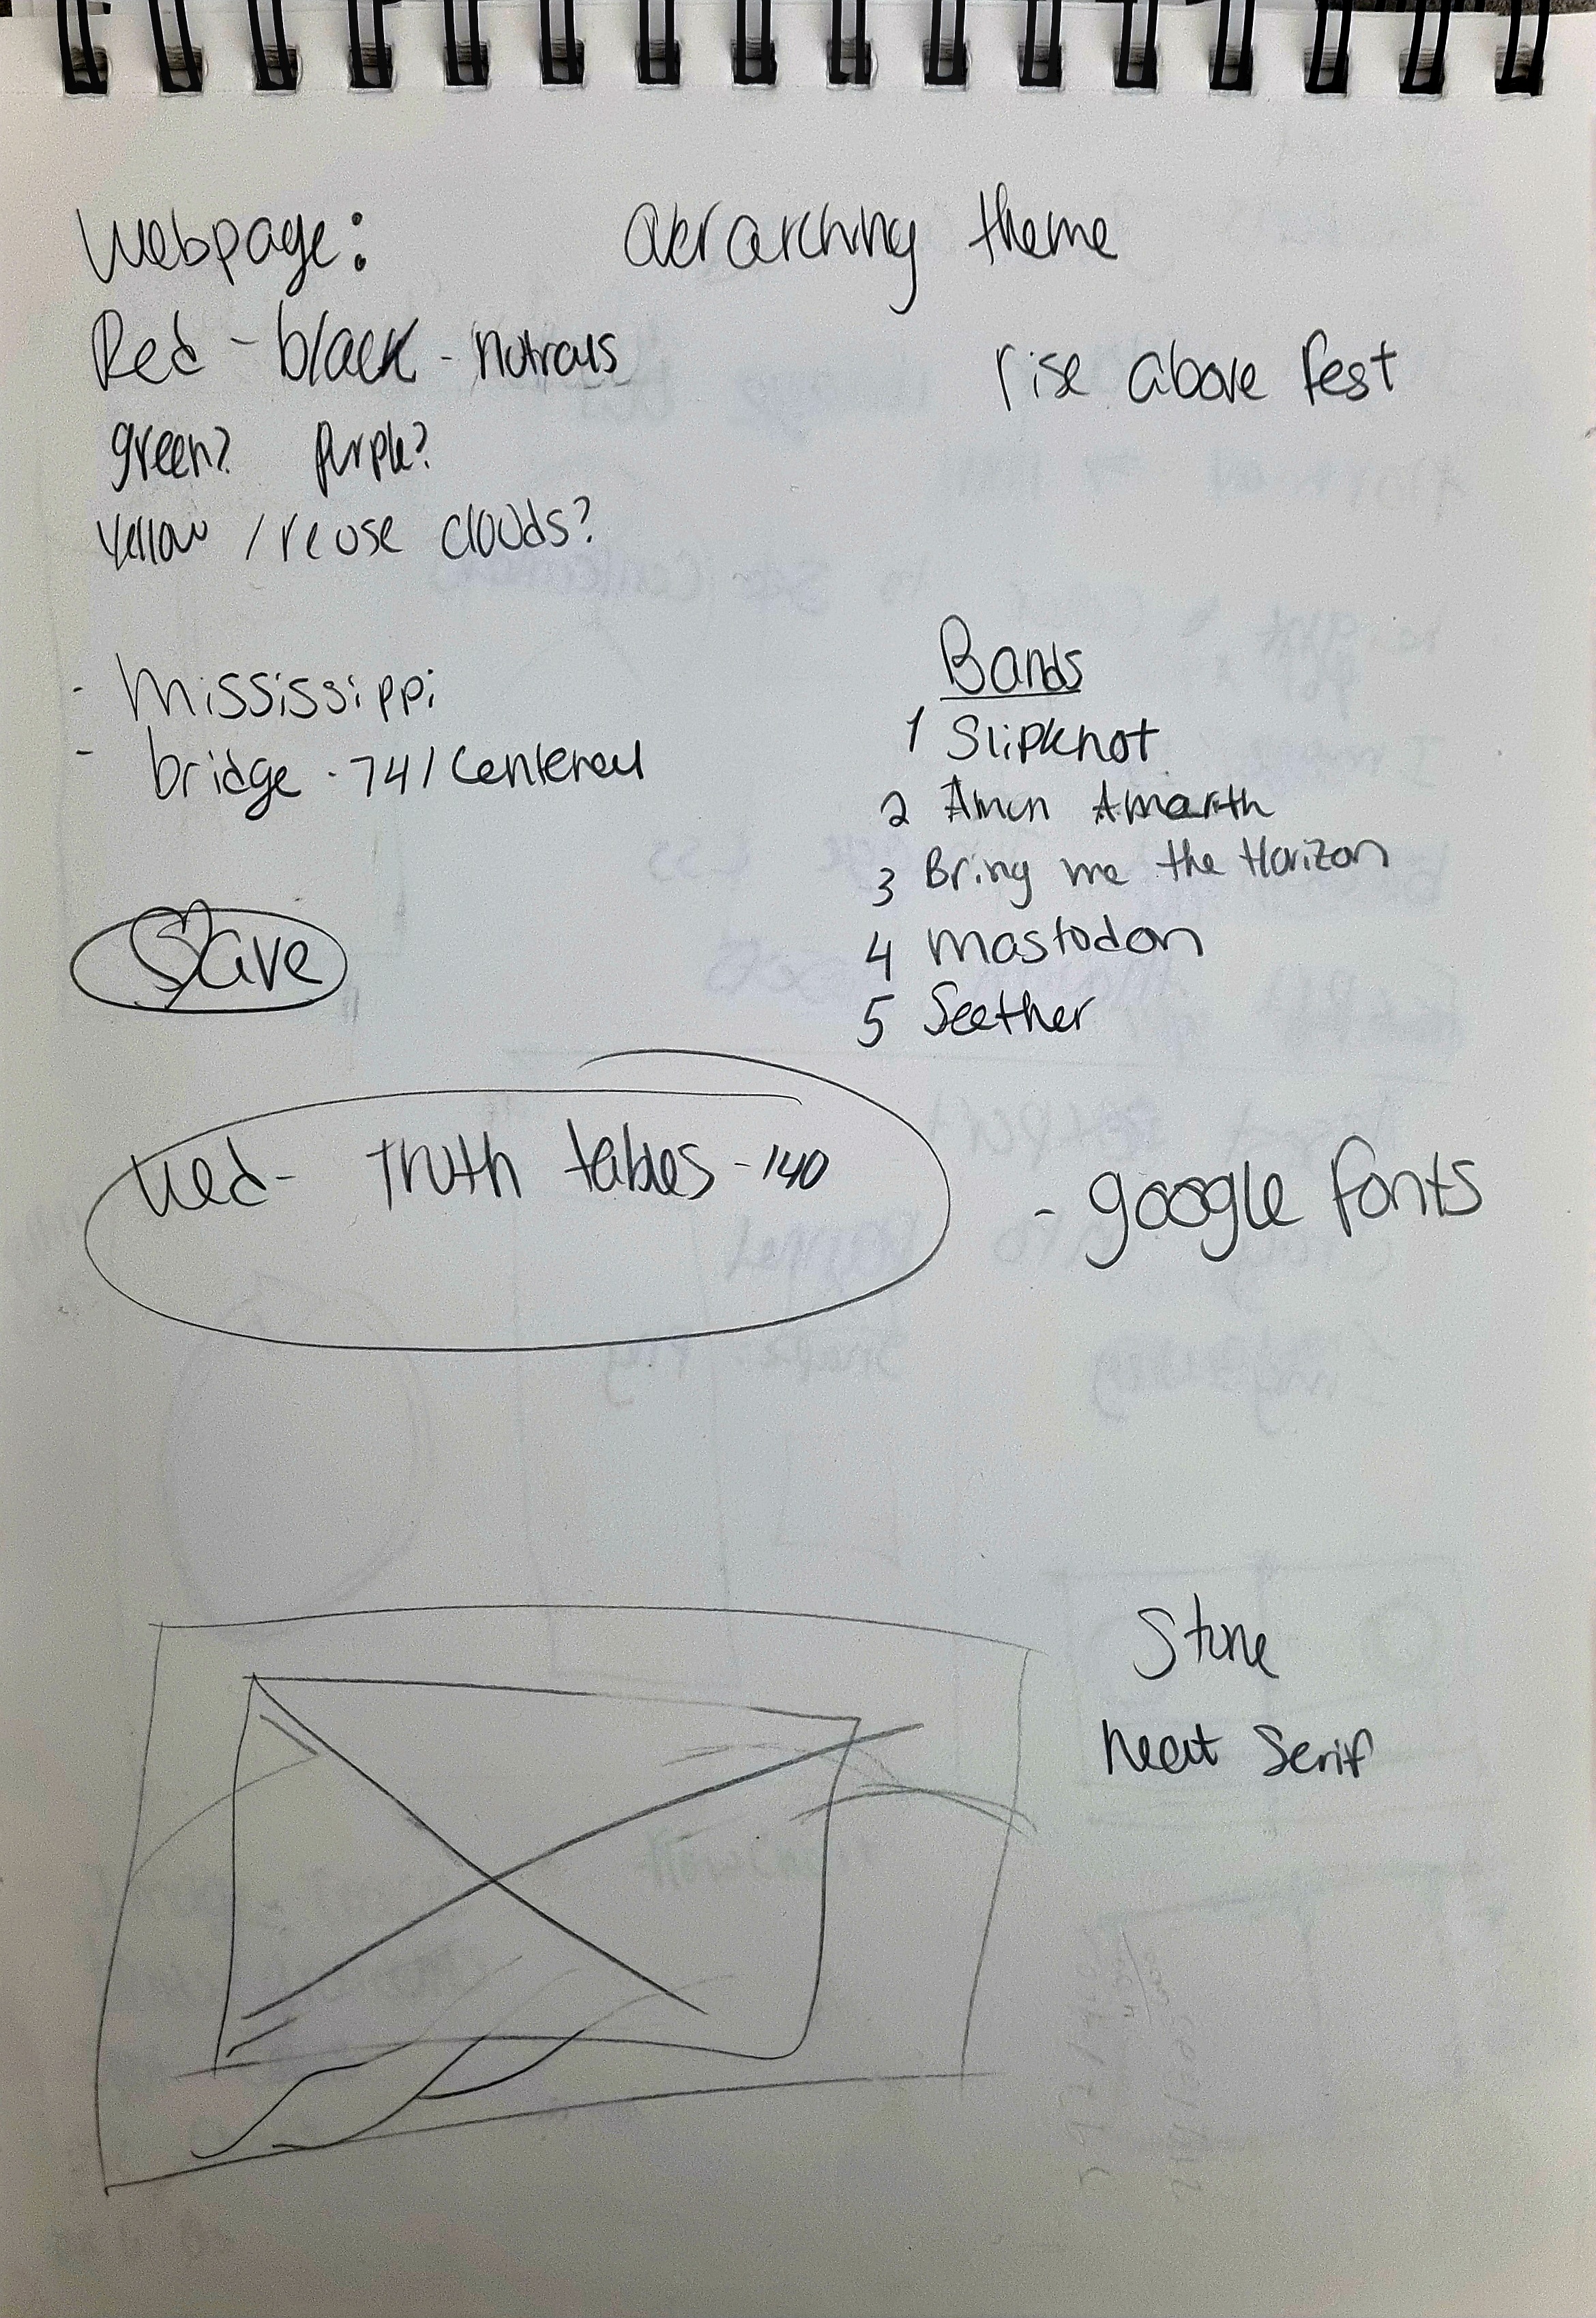 Webpage: overarching theme
Red - black - nutrals
rise above fest
green? purple?
Yellow / reuse clouds?
- Mississippi
- bridge - 74 / Centered
Bands
1 Slipknot
2 Amon Amarth
3 Bring me the Horizon
4 Mastodon
5 Seether
Save
Truth tables - 140
- google fonts
Stone
neat Serif